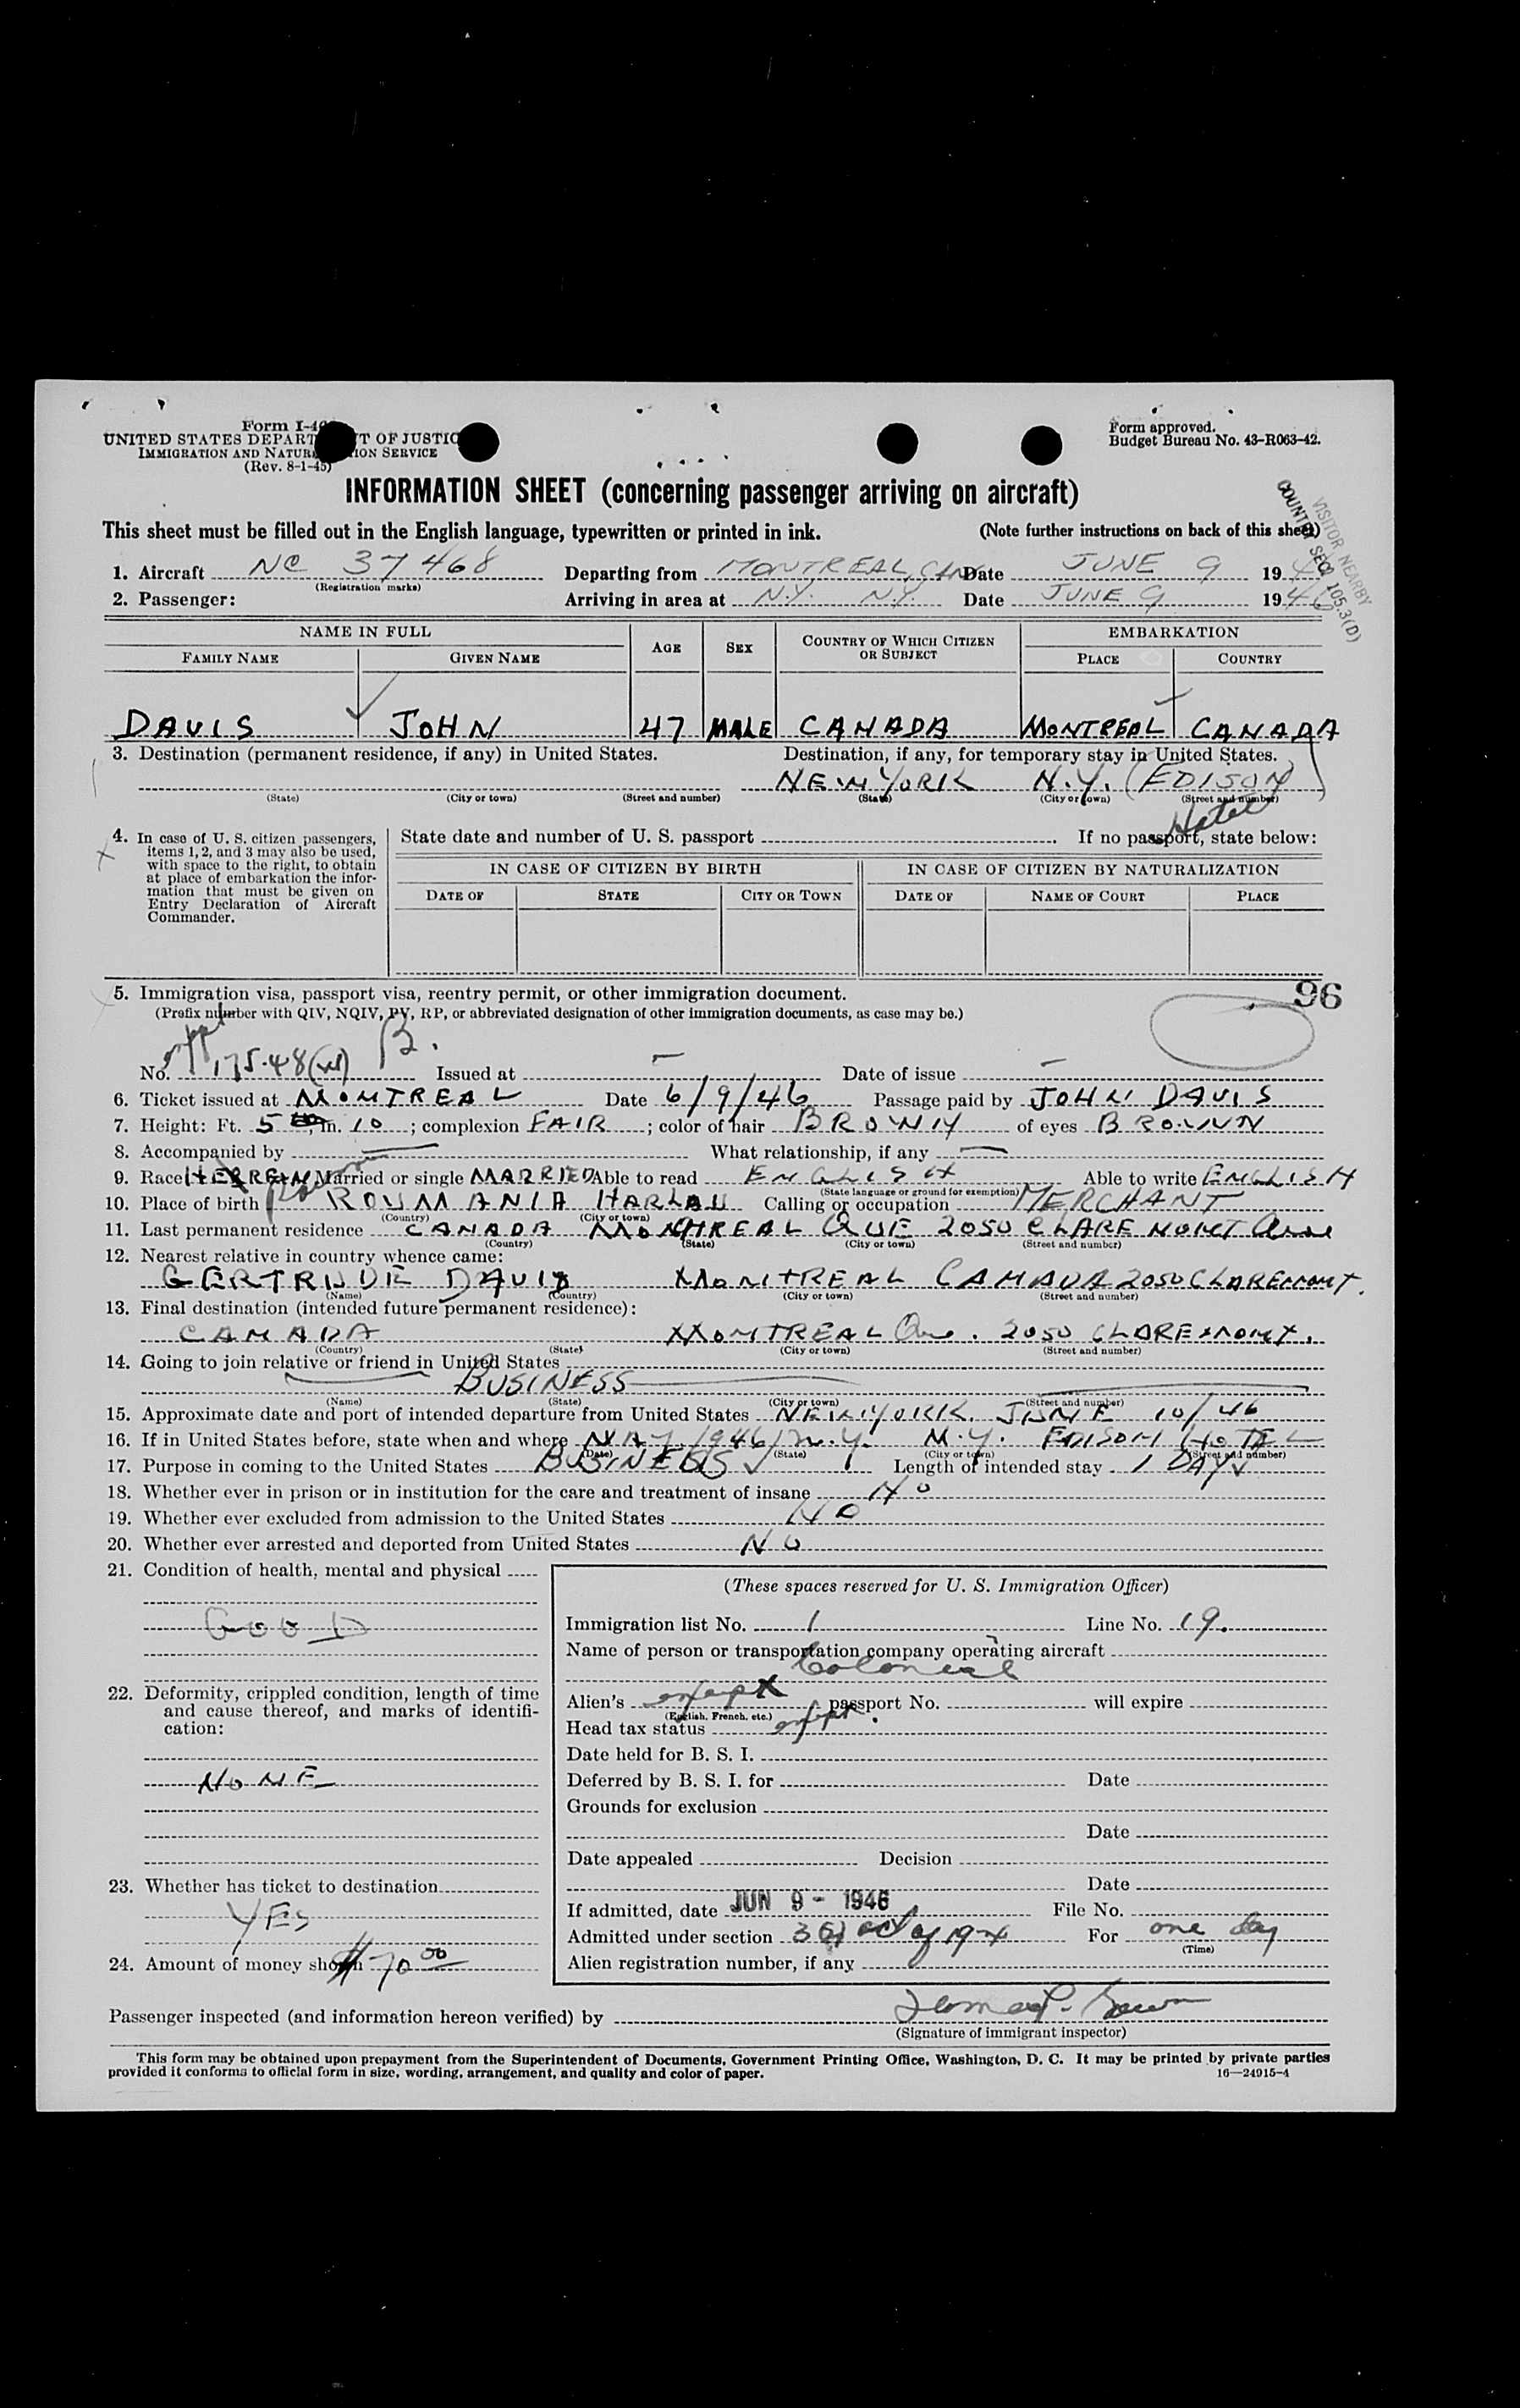 Form I-4
UNITED STATES DEPART T OF JUSTIC
IMMIGRATION AND NATUR TION SERVICE
(Rev. 8-1-45)
Form approved.
Budget Bureau No. 43-R063-42.
INFORMATION SHEET (concerning passenger arriving on aircraft)
This sheet must be filled out in the English language, typewritten or printed in ink. (Note further instructions on back of this sheet)
VISITOR NEARBY
COUNTRY SEC. 105.3(D)
1. Aircraft NC 37468 Departing from MONTREAL, CAN Date JUNE 9 1946
(Registration marks)
2. Passenger: Arriving in area at N.Y. N.Y. Date JUNE 9 1946
NAME IN FULL AGE SEX COUNTRY OF WHICH CITIZEN OR SUBJECT EMBARKATION
FAMILY NAME GIVEN NAME PLACE COUNTRY
DAVIS JOHN 47 MALE CANADA MONTREAL CANADA
3. Destination (permanent residence, if any) in United States. Destination, if any, for temporary stay in United States.
NEW YORK N.Y. (EDISON Hotel)
(State) (City or town) (Street and number) (State) (City or town) (Street and number)
4. In case of U. S. citizen passengers, items 1, 2, and 3 may also be used, with space to the right, to obtain at place of embarkation the information that must be given on Entry Declaration of Aircraft Commander.
State date and number of U. S. passport If no passport, state below:
IN CASE OF CITIZEN BY BIRTH IN CASE OF CITIZEN BY NATURALIZATION
DATE OF STATE CITY OR TOWN DATE OF NAME OF COURT PLACE
5. Immigration visa, passport visa, reentry permit, or other immigration document. 96
(Prefix number with QIV, NQIV, PV, RP, or abbreviated designation of other immigration documents, as case may be.)
No. 175.48 B. Issued at — Date of issue —
6. Ticket issued at MONTREAL Date 6/9/46 Passage paid by JOHN DAVIS
7. Height: Ft. 5, in. 10; complexion FAIR; color of hair BROWN of eyes BROWN
8. Accompanied by — What relationship, if any —
9. Race Married or single MARRIED Able to read ENGLISH Able to write ENGLISH
(State language or ground for exemption)
10. Place of birth ROUMANIA HARLAU Calling or occupation MERCHANT
(Country) (City or town)
11. Last permanent residence CANADA MONTREAL QUE 2050 CLAREMONT Ave
(Country) (State) (City or town) (Street and number)
12. Nearest relative in country whence came:
GERTRUDE DAVIS MONTREAL CANADA 2050 CLAREMONT.
(Name) (Country) (City or town) (Street and number)
13. Final destination (intended future permanent residence):
CANADA MONTREAL Que. 2050 CLAREMONT.
(Country) (State) (City or town) (Street and number)
14. Going to join relative or friend in United States
BUSINESS
(Name) (State) (City or town) (Street and number)
15. Approximate date and port of intended departure from United States NEW YORK. JUNE 10/46
16. If in United States before, state when and where MAY 1946 N.Y. N.Y. EDISON HOTEL
(Date) (State) (City or town) (Street and number)
17. Purpose in coming to the United States BUSINESS Length of intended stay 1 DAY
18. Whether ever in prison or in institution for the care and treatment of insane NO
19. Whether ever excluded from admission to the United States NO
20. Whether ever arrested and deported from United States NO
21. Condition of health, mental and physical
GOOD
22. Deformity, crippled condition, length of time and cause thereof, and marks of identification:
NONE
23. Whether has ticket to destination
YES
24. Amount of money shown $70.00
(These spaces reserved for U. S. Immigration Officer)
Immigration list No. 1 Line No. 19.
Name of person or transportation company operating aircraft
Colonial
Alien's exempt passport No. will expire
(English, French, etc.)
Head tax status exempt.
Date held for B. S. I.
Deferred by B. S. I. for Date
Grounds for exclusion
Date
Date appealed Decision
Date
If admitted, date JUN 9 - 1946 File No.
Admitted under section 3(2) act of 1924 For one day
(Time)
Alien registration number, if any
Passenger inspected (and information hereon verified) by
(Signature of immigrant inspector)
This form may be obtained upon prepayment from the Superintendent of Documents, Government Printing Office, Washington, D. C. It may be printed by private parties
provided it conforms to official form in size, wording, arrangement, and quality and color of paper. 16—24915-4